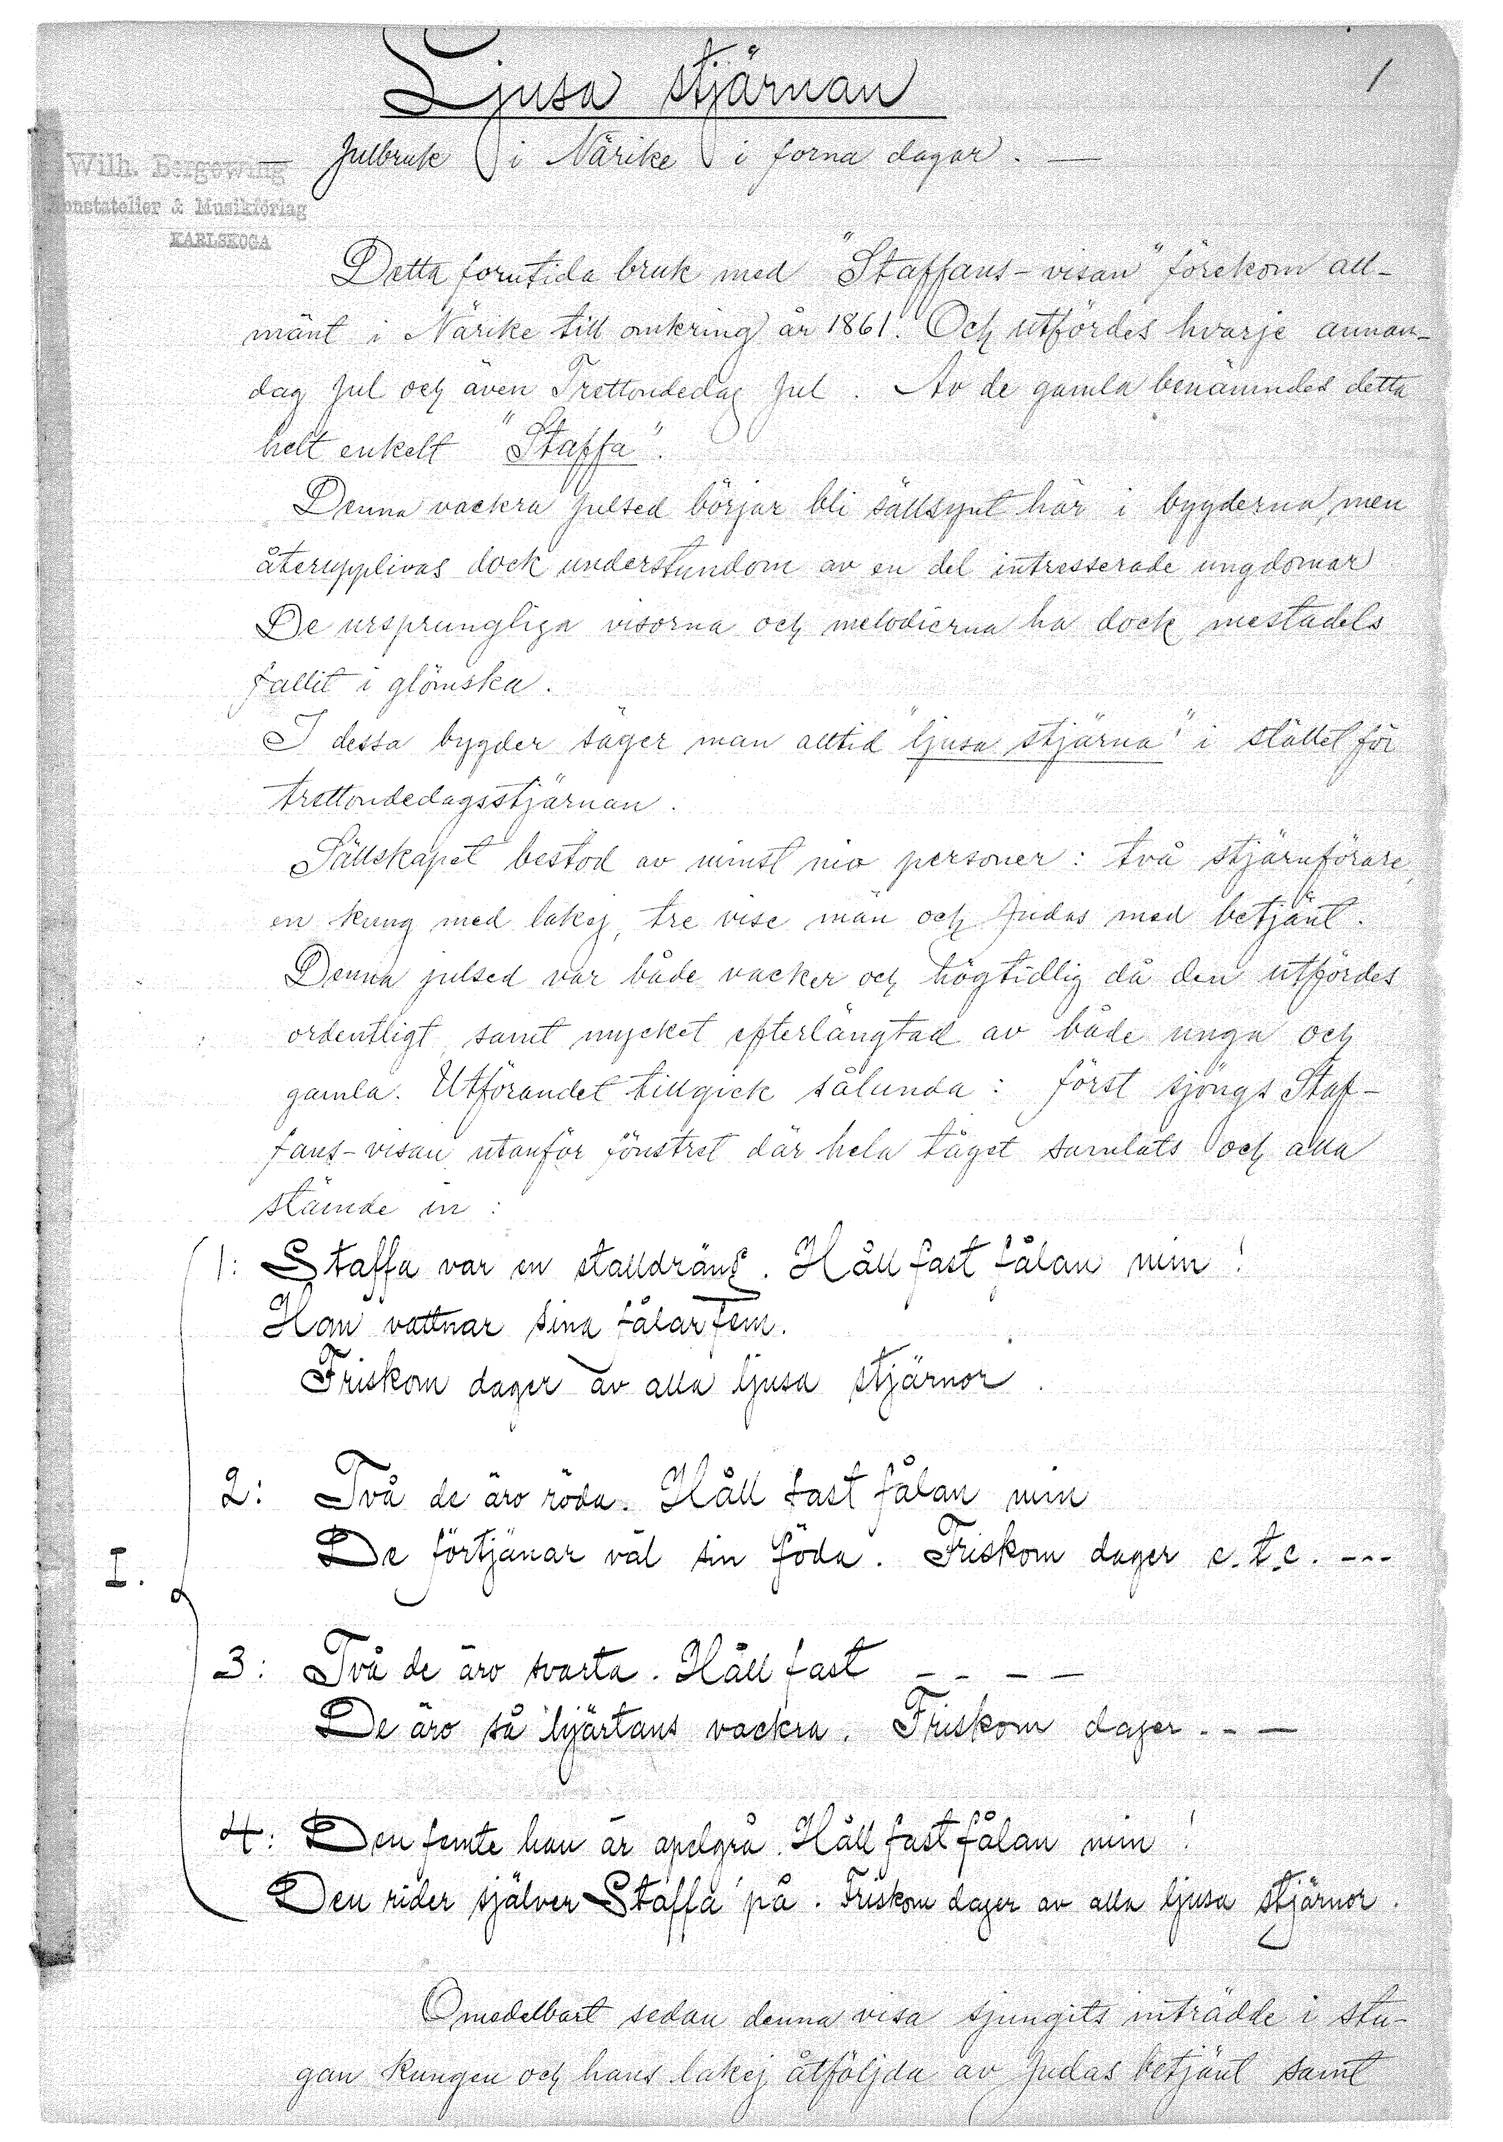 1
Ljusa stjärnan
— Julbruk i Närike i forna dagar. —
Wilh. Bergewing
Konstatelier & Musikförlag
KARLSKOGA
Detta forntida bruk med "Staffans-visan" förekom all-
mänt i Närike till omkring år 1861. Och utfördes hvarje annan-
dag Jul och även Trettondedag Jul. Av de gamla benämndes detta
helt enkelt "Staffa".
Denna vackra julsed börjar bli sällsynt här i bygderna, men
återupplivas dock understundom av en del intresserade ungdomar
De ursprungliga visorna och melodierna ha dock mestadels
fallit i glömska.
I dessa bygder säger man alltid "ljusa stjärna" i stället för
trettondedagsstjärnan.
Sällskapet bestod av minst nio personer: två stjärnförare,
en kung med lakej, tre vise män och Judas med betjänt.
Denna julsed var både vacker och högtidlig då den utfördes
ordentligt, samt mycket efterlängtad av både unga och
gamla. Utförandet tillgick sålunda: först sjöngs Staf-
fans-visan utanför fönstret där hela tåget samlats och alla
stämde in:
I.
1: Staffa var en stalldräng. Håll fast fålan min!
Han vattnar sina fålar fem.
Friskom dager av alla ljusa stjärnor.
2: Två de äro röda. Håll fast fålan min
De förtjänar väl sin föda. Friskom dager e.t.c. ---
3: Två de äro svarta. Håll fast - - - -
De äro så hjärtans vackra. Friskom dager - - -
4: Den femte han är apelgrå. Håll fast fålan min!
Den rider själver Staffa på. Friskom dager av alla ljusa stjärnor.
Omedelbart sedan denna visa sjungits inträdde i stu-
gan kungen och hans lakej åtföljda av Judas betjänt samt